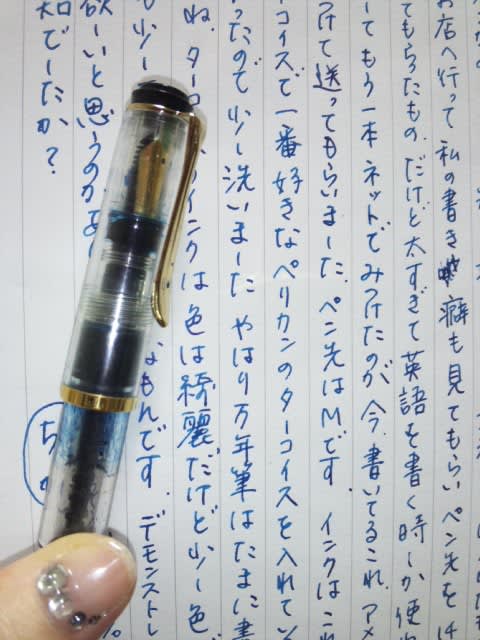 お店へ行って 私の書き癖も見てもらい ペン先を
てもらったもの.だけど太すぎて英語を書く時しか使
してもう一本 ネットでみつけたのが今、書いてるこれ.アメ
つけて送ってもらいました.ペン先はMです.インクはこれ
コイスで一番好きなペリカンのターコイスを入れてい
ったので少し洗いました やはり万年筆はたまに書
ね.ターコ インクは色は綺麗だけど少し色
も少し なもんです.デモンストレ
欲しいと思うのがあ
知でしたか?